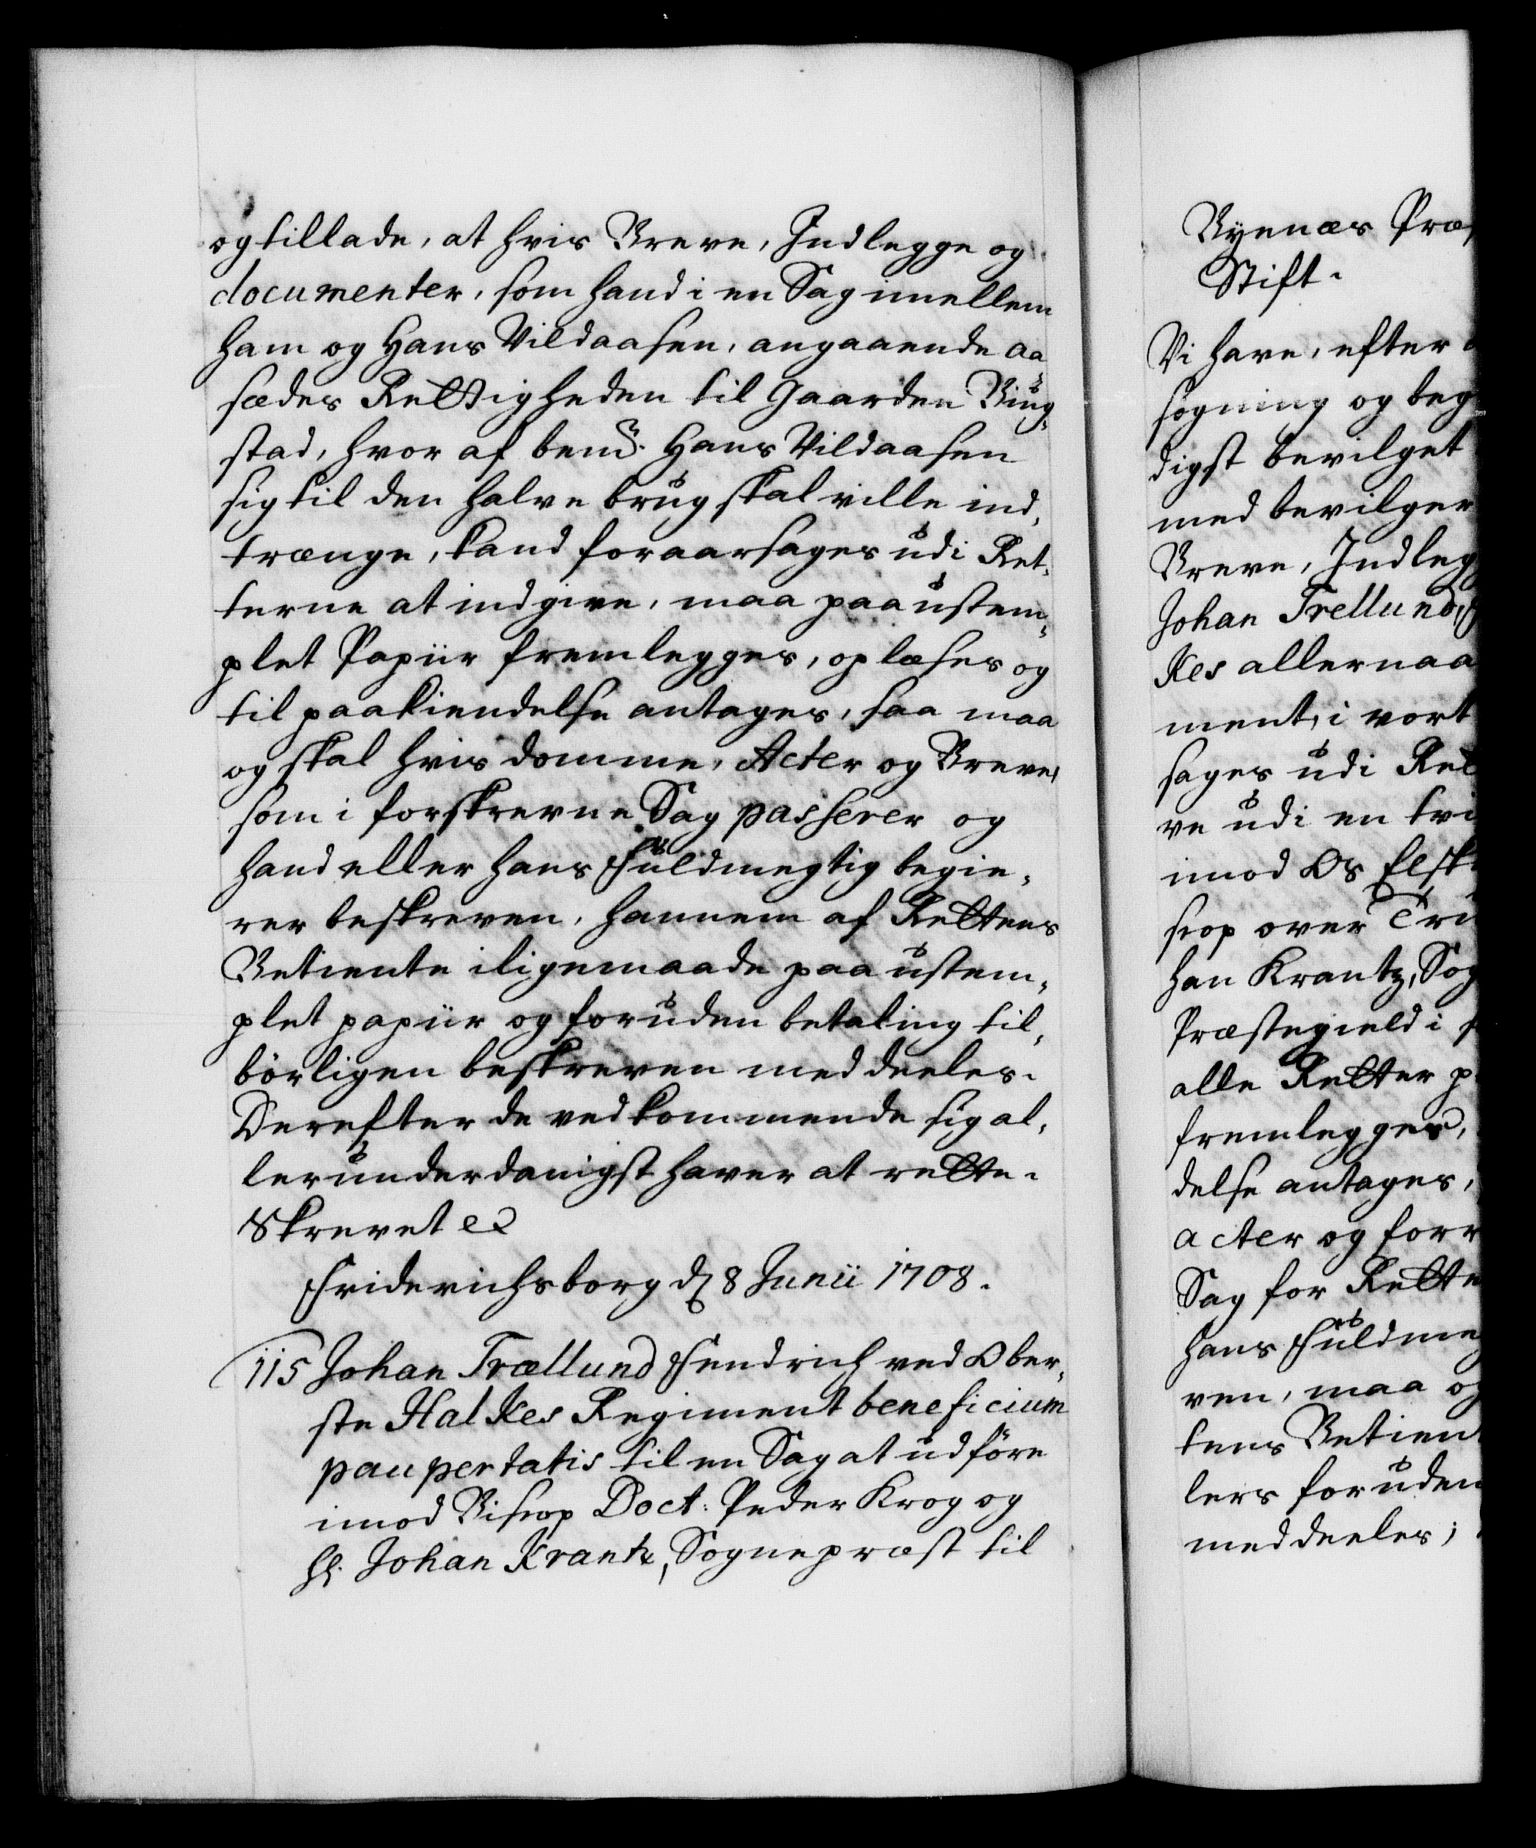 og tillade, at hvis Breve, Indlegge og
documenter, som hand i en Sag imellem
ham og Hans Vildaasen, angaaende Aa,
sædes Rettigheden til Gaarden Ring,
stad, hvor af bemte. Hans Vildaasen
sig til den halve brug skal ville ind,
trænge, kand foraarsages udi Ret,
terne at indgive, maa paa ustem,
plet Papiir fremlegges, oplæses og
til paakiendelse antages, saa maa
og skal hvis domme, Acter og Breve,
som i forskrevne Sag passerer og
hand eller hans Fuldmegtig begie,
rer beskreven, hannem af Rettens
Betiente iligemaade paa ustem,
plet papiir og foruden betaling til,
börligen beskreven meddeeles.
Derefter de vedkommende sig al,
lerunderdanigst haver at rette.
Skrevet &c
Friderichsborg d 8 Junii 1708.
115 Johan Trællund Fendrich ved Ober,
ste Halkes Regiment beneficium
paupertatis til en Sag at udföre
imod Biscop Doct: Peder Krog og
Hr. Johan Krantz, Sognepræst til
Bynæs Præs
Stift.
Vi have, efter
søgning og beg
digst bevilget
med bevilger
Breve, Indleg
Johan Trellund, F
Kes allernaa
ment, i vort
sages udi Ret
ve udi en tvi
imod Os Elsk
scop over Tru
han Krantz, Sog
Præstegield i
alle Retter p
fremlegges,
delse antages,
acter og forr
Sag for Rette
hans Fuldme
ven, maa og
tens Betient
lers foruden
meddeeles;